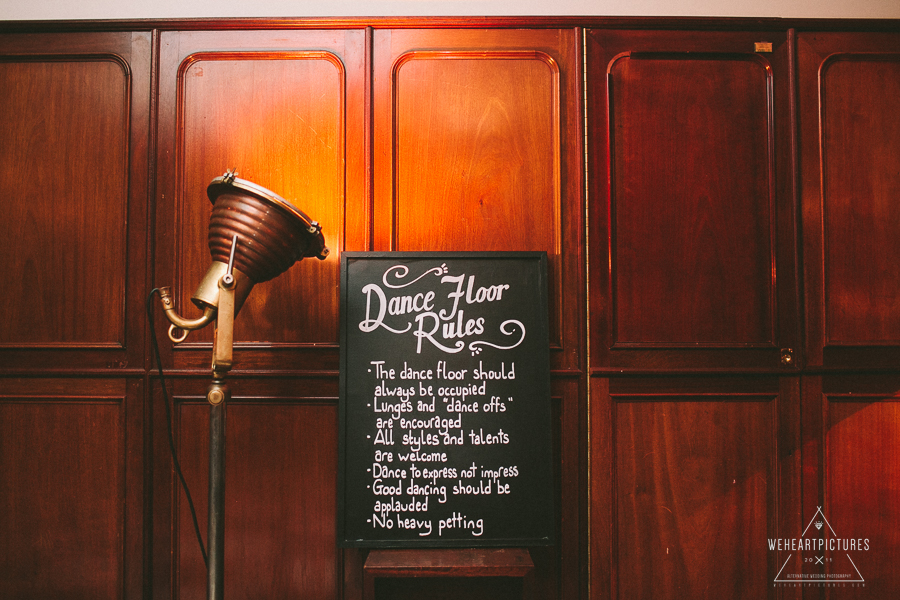 Dance Floor
Rules
- The dance floor should
always be occupied
- Lunges and "dance offs"
are encouraged
- All styles and talents
are welcome
- Dance to express not impress
- Good dancing should be
applauded
- No heavy petting
WEHEARTPICTURES
20 11
ALTERNATIVE WEDDING PHOTOGRAPHY
WEHEARTPICTURES.COM